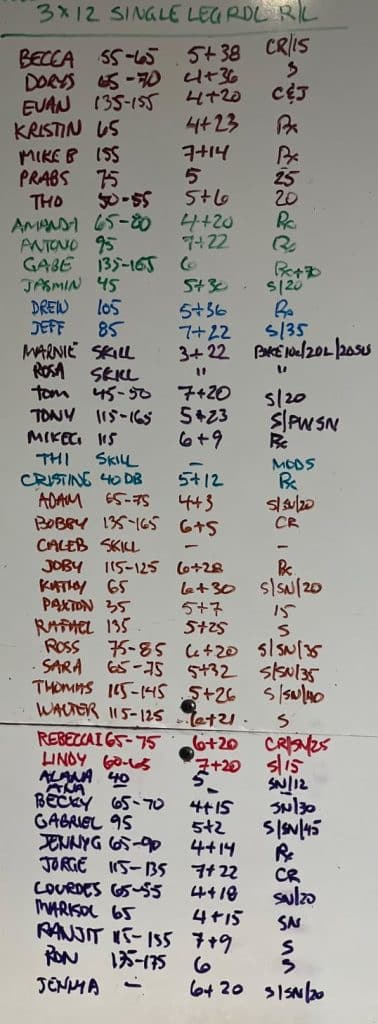 3 x 12 SINGLE LEG RDL R/L
BECCA 55-65 5+38 CR/15
DORYS 65-70 4+36 S
EVAN 135-155 4+20 C&J
KRISTIN 65 4+23 Rx
MIKE B 155 7+14 Rx
PRABS 75 5 25
THO 50-55 5+6 20
AMANDA 65-80 4+20 Rx
ANTONO 95 7+22 Rx
GABE 135-165 6 Rx+70
JASMIN 45 5+30 S/20
DREW 105 5+36 Rx
JEFF 85 7+22 S/35
MARNIE SKILL 3+22
ROSA SKILL " "
TOM 45-50 7+20 S/20
TONY 115-165 5+23 S/PWSN
MIKEG 115 6+9 Rx
THI SKILL - MODS
CRISTING 40 DB 5+12 Rx
ADAM 65-75 4+3 S/SN/20
BOBBY 135-165 6+5 CR
CALEB SKILL - -
JOBY 115-125 6+28 Rx
KATHY 65 6+30 S/SN/20
PAXTON 35 5+7 15
RAFAEL 135 5+25 S
ROSS 75-85 6+20 S/SN/35
SARA 65-75 5+32 S/SN/35
THOMAS 5+26 S/SN/40
WALTER 115-125 6+21 S
REBECCA I 65-75 6+20 CR/SN/25
LINDY 60-65 7+20 S/15
ALANA 40 5 SN/12
ANA -
BECKY 65-70 4+15 SN/30
GABRIEL 95 5+2 S/SN/45
JENNY G 65-90 4+14 Rx
JORGE 115-135 7+22 CR
LOURDES 65-55 4+18 SN/20
MARISOL 65 4+15 SN
RANJIT 115-135 7+9 S
RON 135-175 6 S
JENNY A - 6+20 S/SN/20